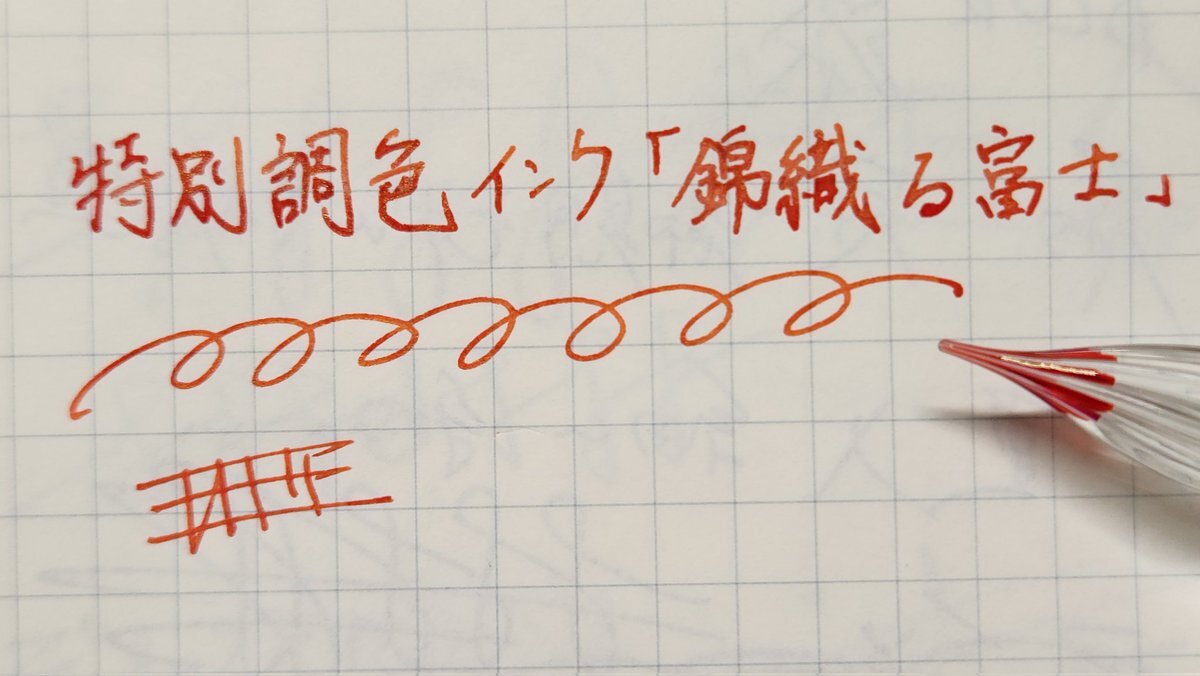 特別調色インク「錦織る富士」